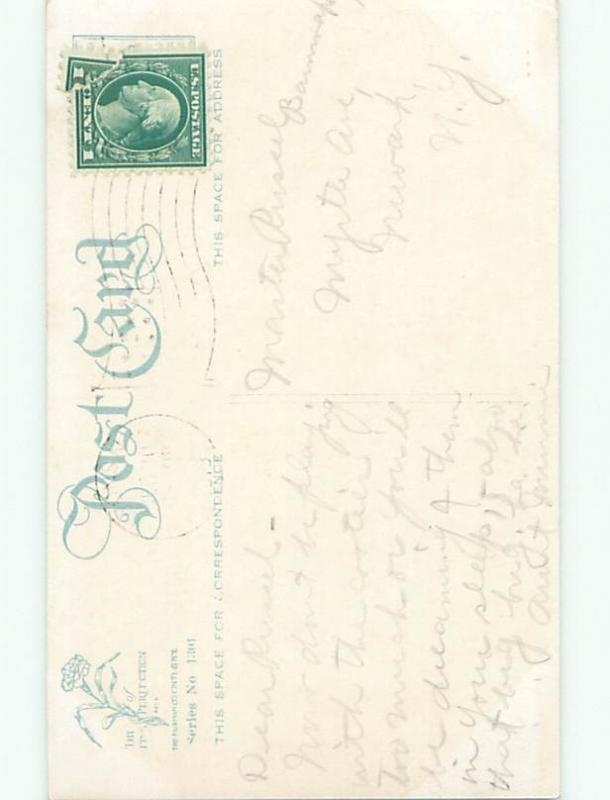 Post Card
THIS SPACE FOR CORRESPONDENCE
THIS SPACE FOR ADDRESS
U.S. POSTAGE
1 CENT 1
THE
of
PERFECTION
Series No 1301
Dear Russel -
Now don't be playing
with the cooties
too much or you'll
be dreaming of them
in your sleep, - also
that big bug. Ha. ha.
Aunt Minnie
Master Russel
Myrtle Ave,
Newark,
N. Y.